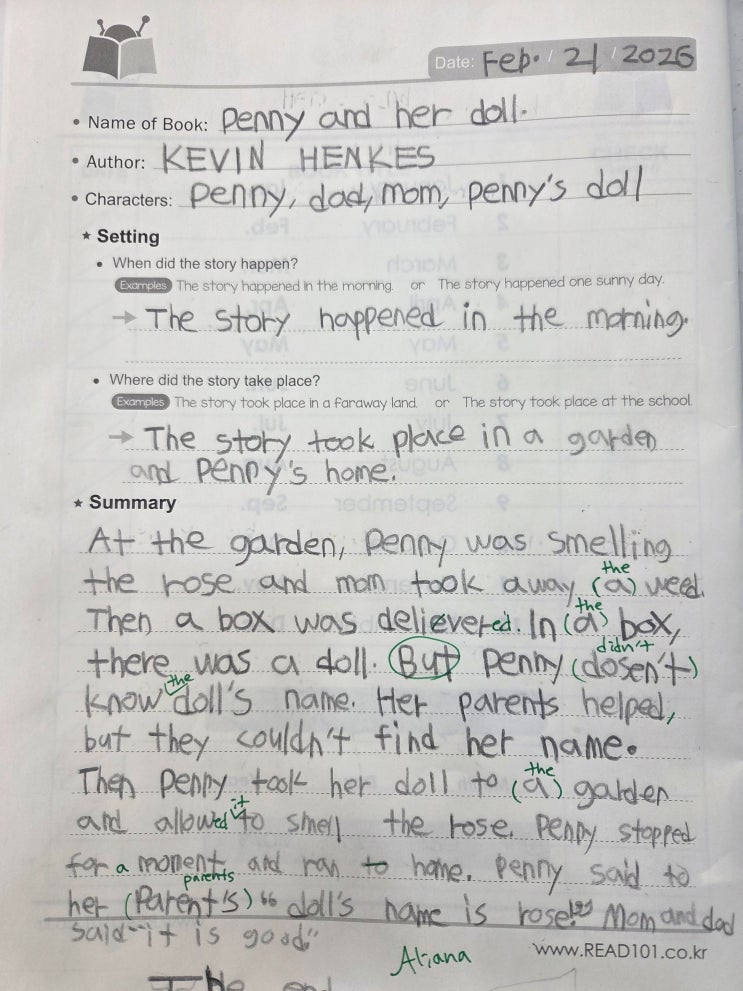 Date: Feb. / 21 / 2026
• Name of Book: Penny and her doll.
• Author: KEVIN HENKES
• Characters: Penny, dad, mom, penny's doll
★ Setting
• When did the story happen?
Examples The story happened in the morning. or The story happened one sunny day.
→ The story happened in the morning.
• Where did the story take place?
Examples The story took place in a faraway land. or The story took place at the school.
→ The story took place in a garden
and Penny's home.
★ Summary
At the garden, Penny was smelling
the
the rose and mom took away (a) weed.
the
Then a box was delievered. In (a) box,
didn't
there was a doll. But Penny (dosen't)
the
know doll's name. Her parents helped,
but they couldn't find her name.
the
Then Penny took her doll to (a) garden
it
and allowed to smell the rose. Penny stopped
for a moment and ran to home. Penny said to
parents
her (Parent's) “doll's name is rose!” Mom and dad
said “it is good”
Ariana
www.READ101.co.kr
The end